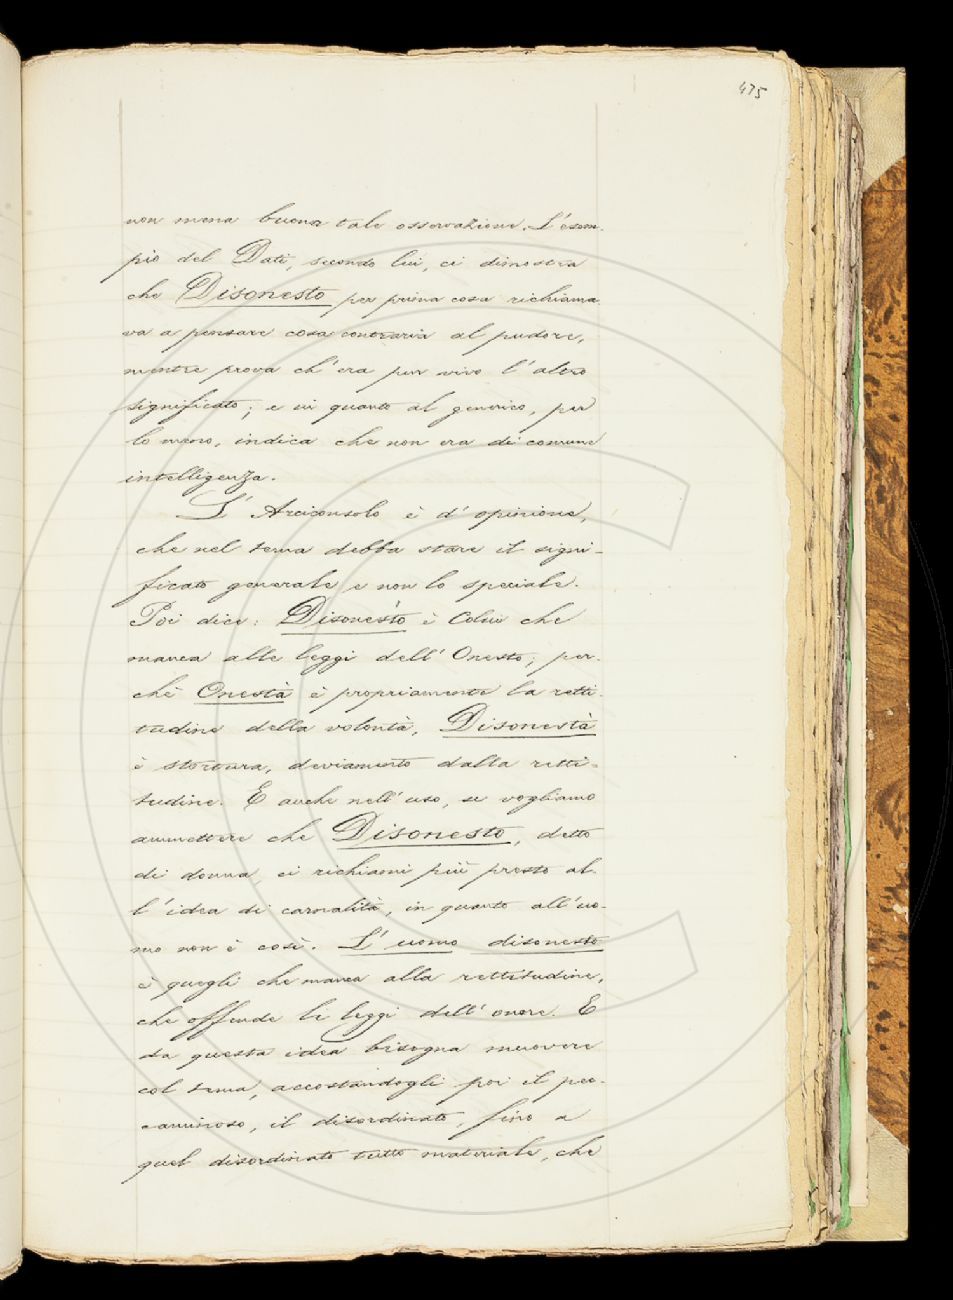 475
non mena buona tale osservazione. L'esem-
pio del Dati, secondo lui, ci dimostra
che Disonesto per prima cosa richiama
va a pensare cosa contraria al pudore,
mentre prova ch'era pur vivo l'altro
significato; e in quanto al generico, per
lo meno, indica che non era di comune
intelligenza.
L'Arciconsolo è d'opinione,
che nel tema debba stare il signi-
ficato generale e non lo speciale.
Poi dice: Disonesto è Colui che
manca alle leggi dell'Onesto; per-
chè Onestà è propriamente la retti-
tudine della volontà, Disonestà
è stortura, deviamento dalla retti-
tudine. E anche nell'uso, se vogliamo
ammettere che Disonesto, detto
di donna, ci richiami più presto al-
l'idea di carnalità, in quanto all'uo-
mo non è così. L'uomo disonesto
è quegli che manca alla rettitudine,
che offende le leggi dell'onore. E
da questa idea bisogna muovere
col tema, accostandogli poi il pec-
caminoso, il disordinato, fino a
quel disordinato tutto materiale, che